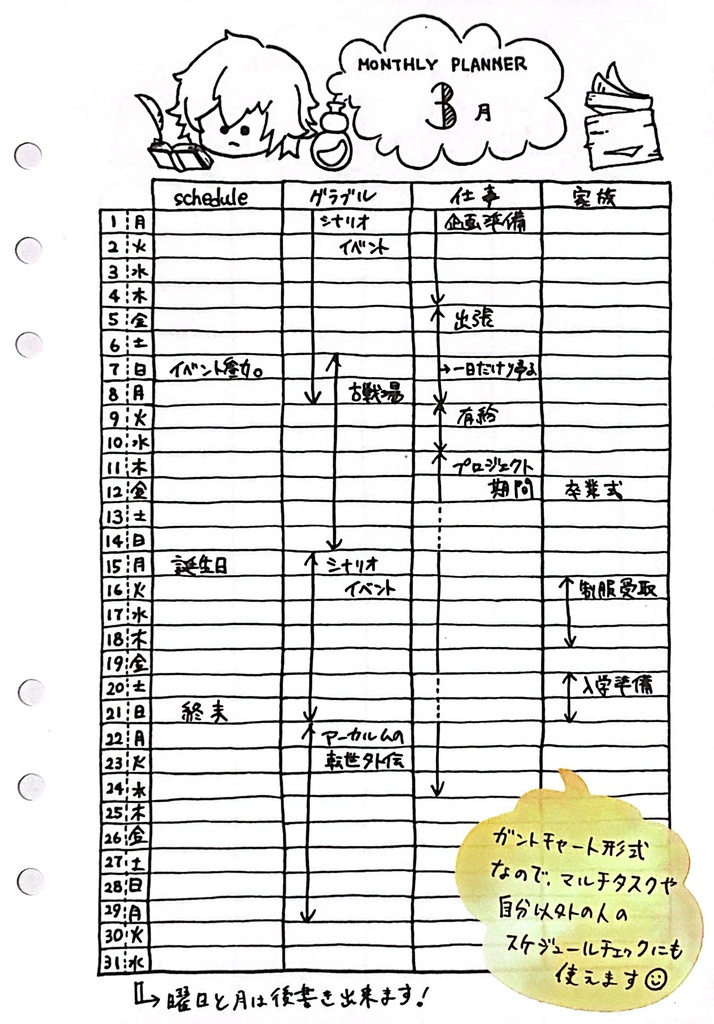 MONTHLY PLANNER
3月
schedule グラブル 仕事 家族
1 月 シナリオ 企画準備
2 火 イベント
3 水
4 木
5 金 出張
6 土
7 日 イベント参加。 →一日だけ帰る
8 月 古戦場
9 火 有給
10 水
11 木 プロジェクト
12 金 期間 卒業式
13 土
14 日
15 月 誕生日 シナリオ
16 火 イベント 制服受取
17 水
18 木
19 金
20 土 入学準備
21 日 終末
22 月 アーカルムの
23 火 転世外伝
24 水
25 木
26 金
27 土
28 日
29 月
30 火
31 水
ガントチャート形式
なので、マルチタスクや
自分以外の人の
スケジュールチェックにも
使えます
→曜日と月は後書き出来ます!